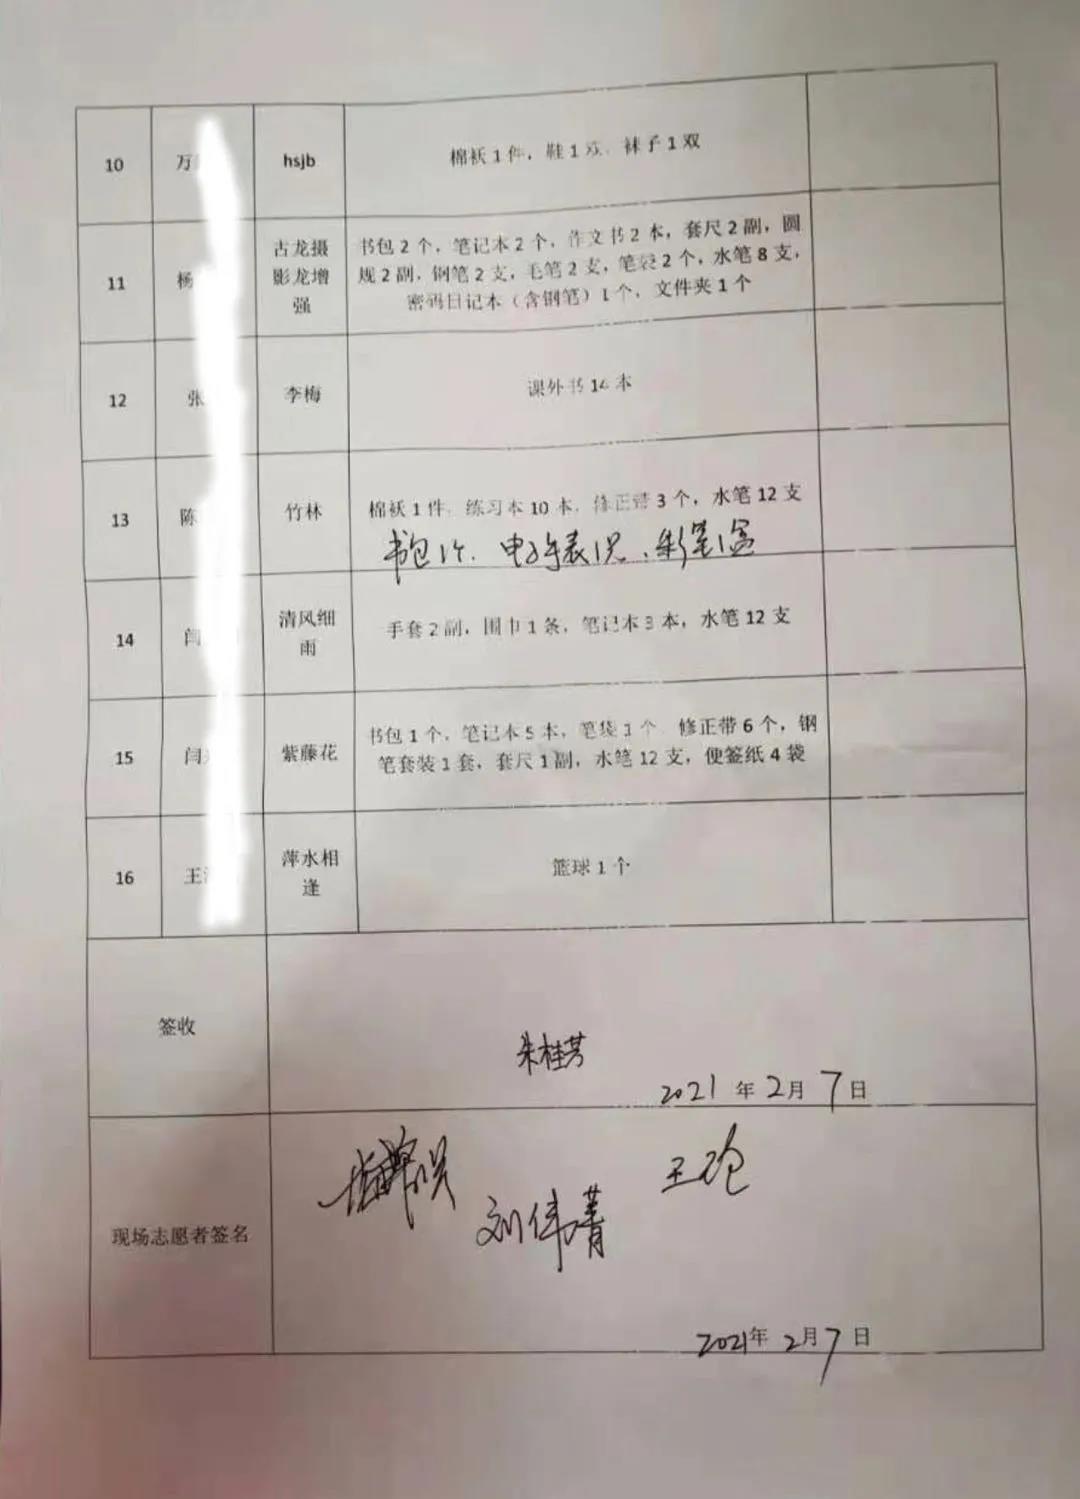 10 万 hsjb 棉袄1件，鞋1双，袜子1双
古龙摄 书包2个，笔记本2个，作文书2本，套尺2副，圆
11 杨 影龙增 规2副，钢笔2支，毛笔2支，笔袋2个，水笔8支，
强 密码日记本（含钢笔）1个，文件夹1个
12 张 李梅 课外书14本
13 陈 竹林 棉袄1件，练习本10本，修正带3个，水笔12支
书包1个、电子手表1只、彩笔1盒
14 闫 清风细 手套2副，围巾1条，笔记本3本，水笔12支
雨
15 闫 紫藤花 书包1个，笔记本5本，笔袋1个，修正带6个，钢
笔套装1套，套尺1副，水笔12支，便签纸4袋
16 王 萍水相 篮球1个
逢
签收
朱桂芳
2021年2月7日
王
刘伟菁
现场志愿者签名
2021年2月7日